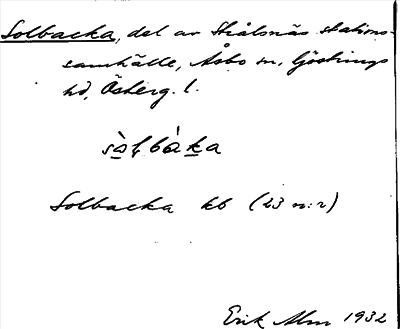 Solbacka, del av Strålsnäs stations-
samhälle, Åsbo sn, Göstrings
hd, Österg. l.
sòlbàka
Solbacka kb (23 n:r)
Erik Alm 1932